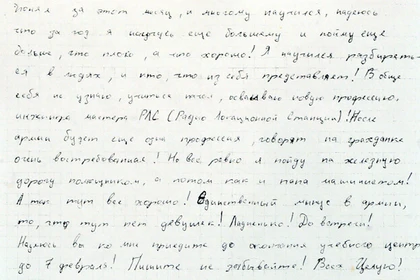 понял за этот месяц, и многому научился, надеюсь
что за год я научусь еще большему и пойму еще
больше, что плохо, а что хорошо! Я научился разбират-
ся в людях, и кто, что из себя представляет! Вобще
себя не узнаю, учиться стал, осваиваю новую профессию.
инженера мастера РЛС (Радио Локационной Станции)! После
армии будет еще одна профессия, говорят на гражданке
очень востребованная! Но всё равно я пойду на железную
дорогу помощником, а потом как и папа машинистом!
А так тут всё хорошо! Единственный минус в армии,
то, что тут нет девушек! Ладненько! До встречи!
Надеюсь вы ко мне приедите до окончания учебного центра
до 7 февраля! Пишите не забывайте! Всех Целую!